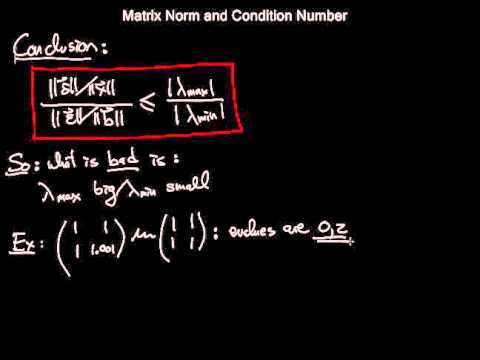 Matrix Norm and Condition Number
Conclusion:
||δ⃗||/||x⃗|| / ||ε⃗||/||b⃗|| ≤ |λmax| / |λmin|
So: what is bad is:
λmax big/λmin small
Ex: (1 1 ; 1 1.001) ~ (1 1 ; 1 1) : evalues are 0,2